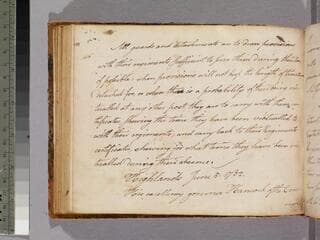 All guards and detachments are to draw provisions
with their regiments sufficient to serve them during their tour
if possible. when provisions will not keep the length of time
detached for, or when there is a probability of their being vic
tualled at any other post they are to carry with them cer
tificates, shewing the time they have been victualled to
with their regiments, and carry back to their regiments
certificates, shewing for what time they have been vic
tualled during their absence.
Highlands June 5. 1782.
His excellency governor Hancock of the Com